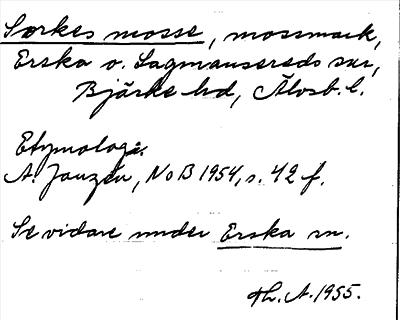 Sorkes mosse, mossmark,
Erska o. Lagmansereds snr,
Bjärke hd, Älvsb. l.
Etymologi.
A. Janzén, NoB 1954, s. 42 f.
Se vidare under Erska sn.
Th. A. 1955.